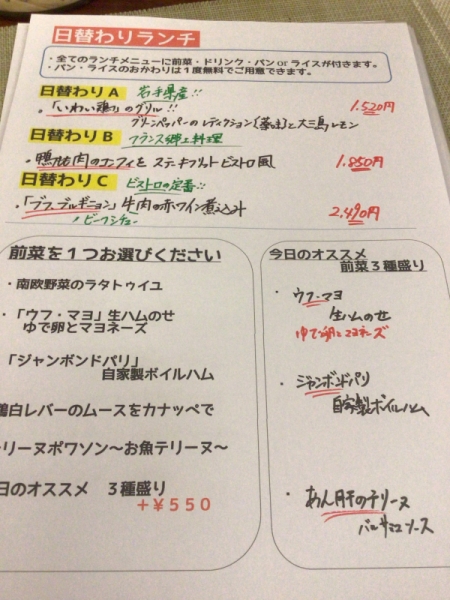 日替わりランチ
・全てのランチメニューに前菜・ドリンク・パン or ライスが付きます。
・パン・ライスのおかわりは１度無料でご用意できます。
日替わり A 岩手県産!!
・「いわい鶏」のグリル!! 1.520円
グリーンペッパーの と大三島レモン
日替わり B フランス郷土料理
・鴨もも肉のコンフィを ステキフリット ビストロ風 1.850円
日替わり C ビストロの定番!!
・「ブフ ブルギニョン」牛肉の赤ワイン煮込み 2.490円
ビーフシチュー
前菜を１つお選びください
・南欧野菜のラタトゥイユ
・「ウフ・マヨ」生ハムのせ
ゆで卵とマヨネーズ
「ジャンボンドパリ」
自家製ボイルハム
鶏白レバーのムースをカナッペで
リーヌポワソン～お魚テリーヌ～
日のオススメ ３種盛り
＋￥５５０
今日のオススメ
前菜３種盛り
・ウフ・マヨ
生ハムのせ
ゆで卵とマヨネーズ
・ジャンボンドパリ
自家製ボイルハム
・あん肝のテリーヌ
バルサミコソース